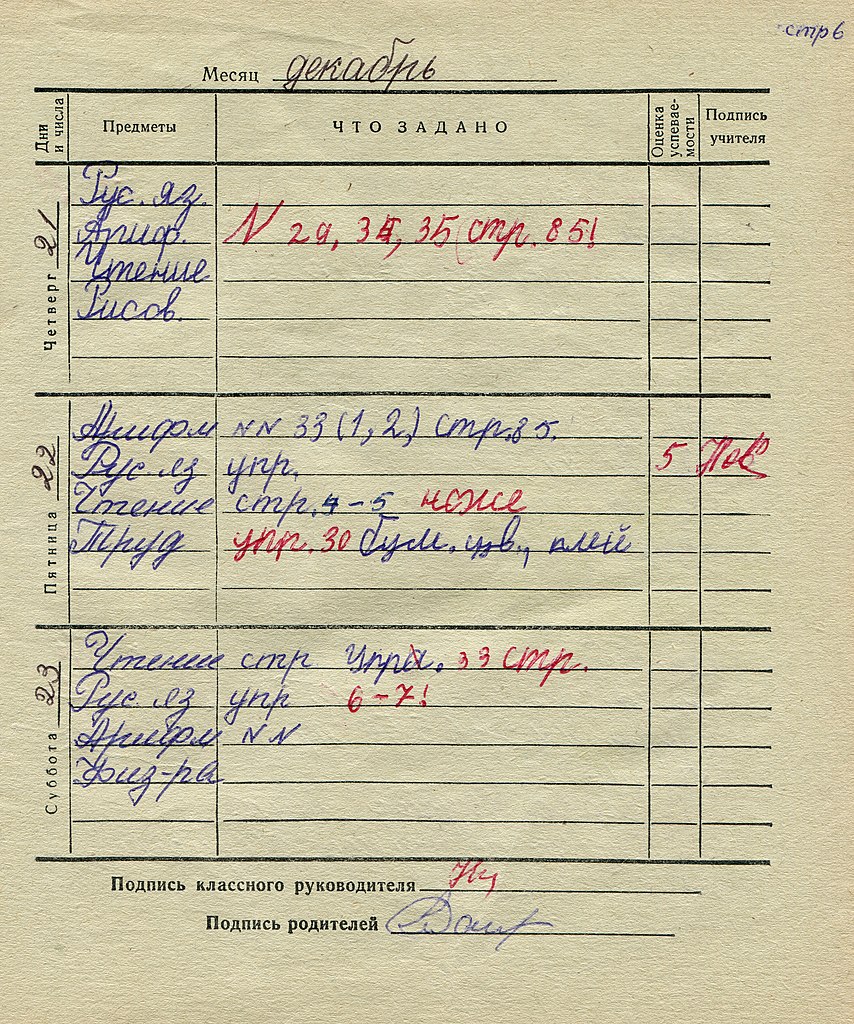 стр 6
Месяц декабрь
Дни и числа Предметы ЧТО ЗАДАНО Оценка успевае-мости Подпись учителя
Четверг 21
Рус. яз.
Ариф. N 29, 34, 35 стр. 85!
Чтение
Рисов.
Пятница 22
Арифм NN 33 (1, 2,) стр. 85.
Рус яз упр. 5
Чтение стр. 4-5
Труд упр. 30 бум. цв., клей
Суббота 23
Чтение стр 33 стр.
Рус. яз упр 6-7!
Арифм NN
Физ-ра
Подпись классного руководителя
Подпись родителей